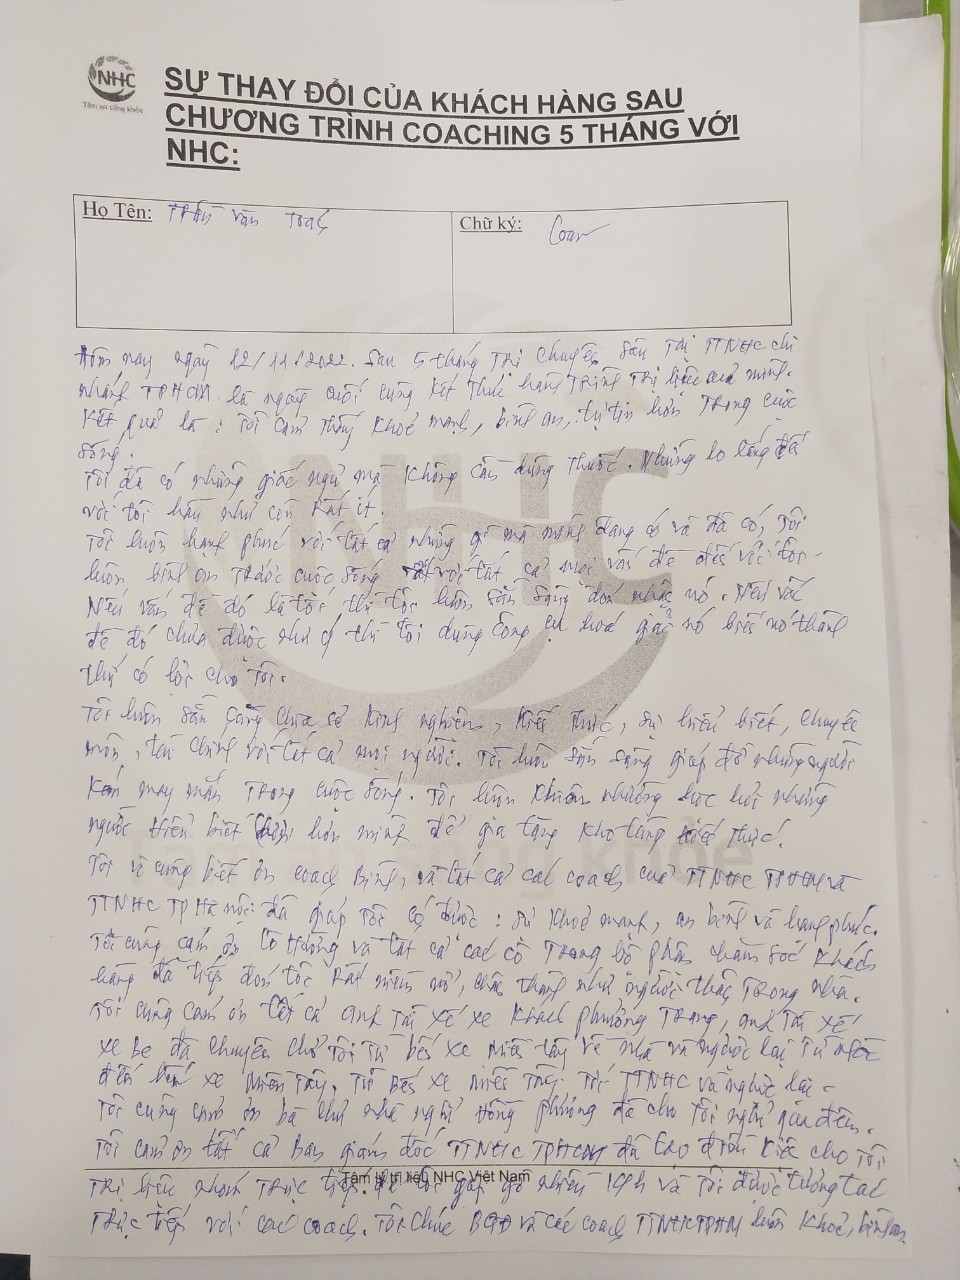 NHC
Tâm trí sống khỏe
SỰ THAY ĐỔI CỦA KHÁCH HÀNG SAU
CHƯƠNG TRÌNH COACHING 5 THÁNG VỚI
NHC:
Họ Tên: Trần Văn
Chữ ký:
Hôm nay ngày 12/11/2022. Sau 5 tháng trị chuyên sâu tại TTNHC chi
nhánh TPHCM là ngày cuối cùng kết thúc hành trình trị liệu của mình.
Kết quả là: Tôi cảm thấy khoẻ mạnh, bình an, tự tin hơn trong cuộc
sống.
Tôi đã có những giấc ngủ mà không cần dùng thuốc. Những lo lắng đến
với tôi hầu như còn rất ít.
Tôi luôn hạnh phúc với tất cả những gì mà mình đang có và đã có, Tôi
luôn bình an trước cuộc sống với tất cả mọi vấn đề đến với tôi.
Nếu vấn đề đó là tốt thì tôi luôn sẵn sàng đón nhận nó. Nếu vấn
đề đó chưa được như ý thì tôi dùng công cụ hoá giải nó biến nó thành
thứ có lợi cho tôi.
Tôi luôn sẵn sàng chia sẻ kinh nghiệm, kiến thức, sự hiểu biết, chuyên
môn, với tất cả mọi người. Tôi luôn sẵn sàng giúp đỡ những người
kém may mắn trong cuộc sống. Tôi luôn khiêm nhường học hỏi những
người hiểu biết hơn mình để gia tăng kho tàng kiến thức.
Tôi vô cùng biết ơn coach Bình, và tất cả các coach của TTNHC TPHCM và
TTNHC TP Hà nội đã giúp tôi có được: sự khoẻ mạnh, an bình và hạnh phúc.
Tôi cũng cảm ơn cô Hường và tất cả các cô trong bộ phận chăm sóc khách
hàng đã tiếp đón tôi rất niềm nở, chân thành như người thân trong nhà.
Tôi cũng cảm ơn tất cả anh tài xế xe khách phương Trang, anh tài xế
xe Be đã chuyên chở tôi từ bến xe miền tây về nhà và ngược lại từ nhà
đến bến xe Miền Tây. Từ bến xe miền Tây tới TTNHC và ngược lại.
Tôi cũng cảm ơn bà chủ nhà nghỉ Hồng phương đã cho tôi nghỉ qua đêm.
Tôi cảm ơn tất cả Ban giám đốc TTNHC TPHCM đã tạo điều kiện cho tôi
Tâm lý trị liệu NHC Việt Nam
trị liệu nhóm trực tiếp. để tôi gặp gỡ nhiều và tôi được tương tác
trực tiếp với các coach. Tôi chúc BGĐ và các coach TTNHCTPHCM luôn khoẻ, bình an.